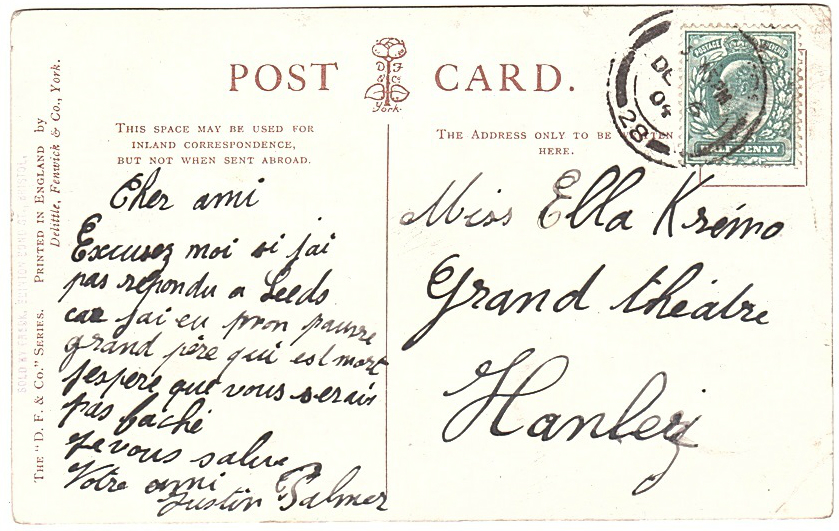 POST CARD.
D F
& Co
York.
THIS SPACE MAY BE USED FOR
INLAND CORRESPONDENCE,
BUT NOT WHEN SENT ABROAD.
THE ADDRESS ONLY TO BE WRITTEN
HERE.
THE "D. F. & Co." SERIES. PRINTED IN ENGLAND by
Delittle, Fenwick & Co., York.
POSTAGE REVENUE
HALFPENNY
DE
04
28
Cher ami
Excusez moi si j'ai
pas répondu a Leeds
car j'ai eu mon pauvre
grand père qui est mort
J'espère que vous serais
pas faché
Je vous salue
Votre ami
Justin Palmer
Miss Ella Krémo
Grand théâtre
Hanley